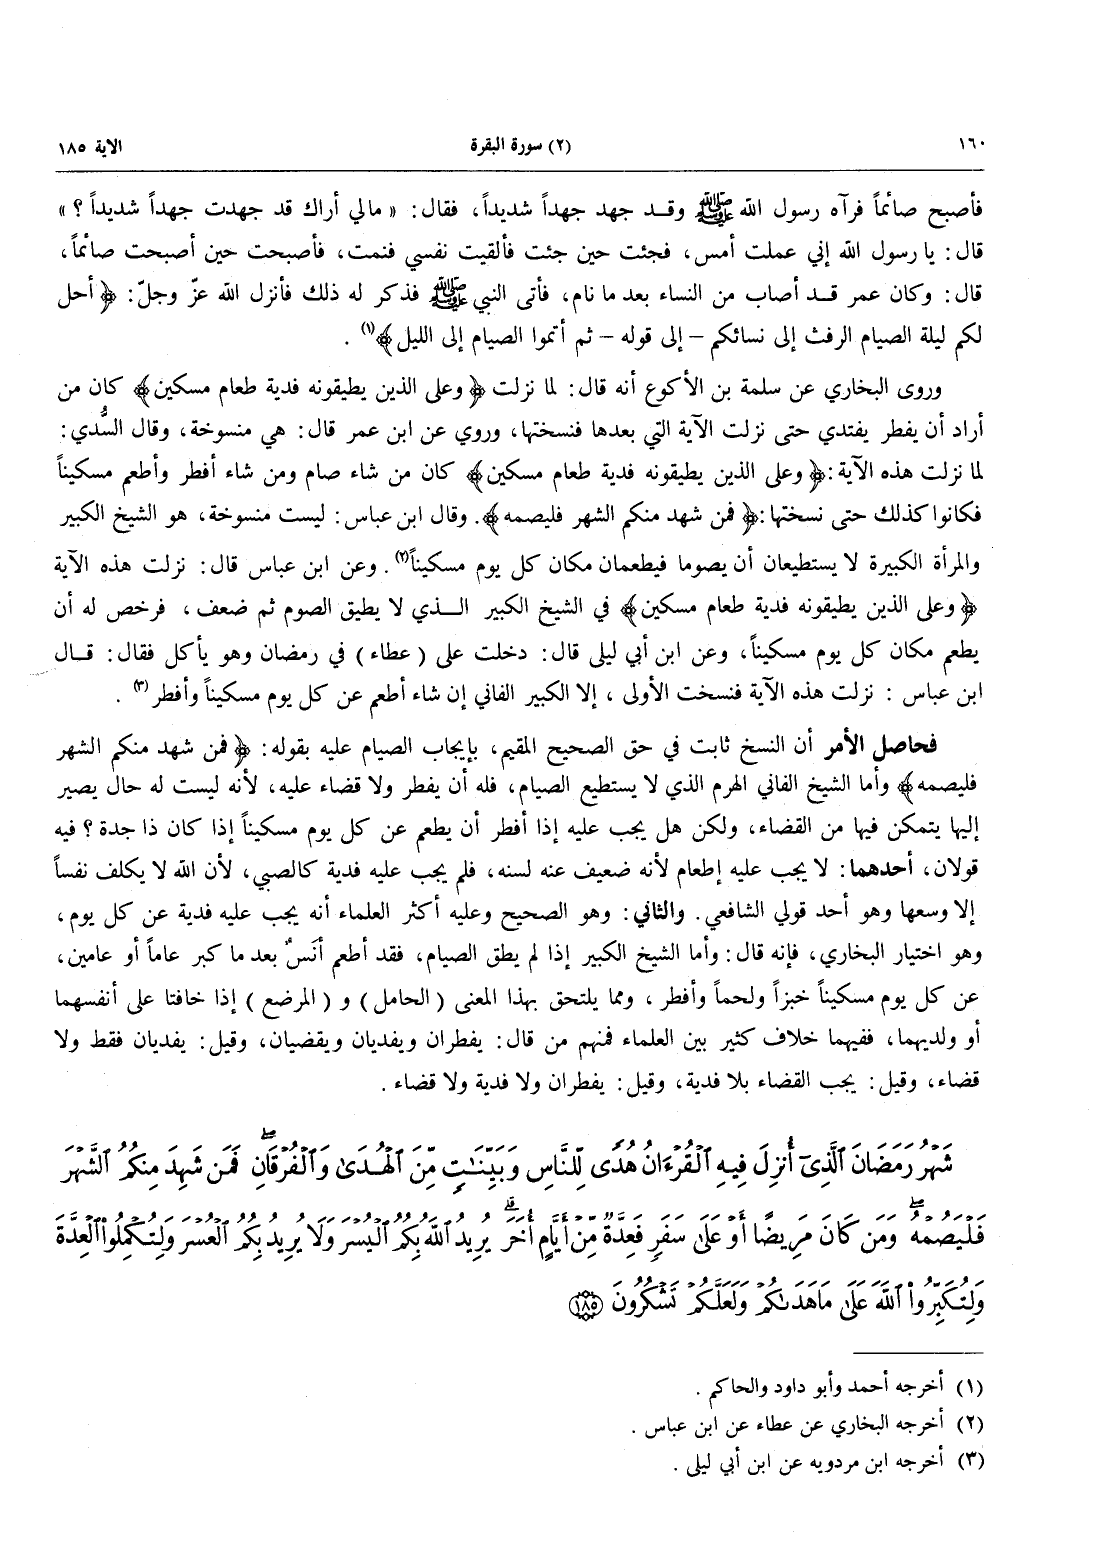 ١٦٠ (٢) سورة البقرة الاية ١٨٥
فأصبح صائماً فرآه رسول الله ﷺ وقد جهد جهداً شديداً، فقال: « مالي أراك قد جهدت جهداً شديداً ؟ »
قال: يا رسول الله إني عملت أمس، فجئت حين جئت فألقيت نفسي فنمت، فأصبحت حين أصبحت صائماً،
قال: وكان عمر قد أصاب من النساء بعد ما نام، فأتى النبي ﷺ فذكر له ذلك فأنزل الله عزّ وجلّ: ﴿ أحل
لكم ليلة الصيام الرفث إلى نسائكم – إلى قوله – ثم أتموا الصيام إلى الليل ﴾(١) .
وروى البخاري عن سلمة بن الأكوع أنه قال: لما نزلت ﴿ وعلى الذين يطيقونه فدية طعام مسكين ﴾ كان من
أراد أن يفطر يفتدي حتى نزلت الآية التي بعدها فنسختها، وروي عن ابن عمر قال: هي منسوخة، وقال السُّدي:
لما نزلت هذه الآية: ﴿ وعلى الذين يطيقونه فدية طعام مسكين ﴾ كان من شاء صام ومن شاء أفطر وأطعم مسكيناً
فكانوا كذلك حتى نسختها: ﴿ فمن شهد منكم الشهر فليصمه ﴾. وقال ابن عباس: ليست منسوخة، هو الشيخ الكبير
والمرأة الكبيرة لا يستطيعان أن يصوما فيطعمان مكان كل يوم مسكيناً(٢) . وعن ابن عباس قال: نزلت هذه الآية
﴿ وعلى الذين يطيقونه فدية طعام مسكين ﴾ في الشيخ الكبير الذي لا يطيق الصوم ثم ضعف، فرخص له أن
يطعم مكان كل يوم مسكيناً، وعن ابن أبي ليلى قال: دخلت على ( عطاء ) في رمضان وهو يأكل فقال: قال
ابن عباس : نزلت هذه الآية فنسخت الأولى ، إلا الكبير الفاني إن شاء أطعم عن كل يوم مسكيناً وأفطر (٣) .
فحاصل الأمر أن النسخ ثابت في حق الصحيح المقيم، بإيجاب الصيام عليه بقوله: ﴿ فمن شهد منكم الشهر
فليصمه ﴾ وأما الشيخ الفاني الهرم الذي لا يستطيع الصيام، فله أن يفطر ولا قضاء عليه، لأنه ليست له حال يصير
إليها يتمكن فيها من القضاء، ولكن هل يجب عليه إذا أفطر أن يطعم عن كل يوم مسكيناً إذا كان ذا جدة ؟ فيه
قولان، أحدهما: لا يجب عليه إطعام لأنه ضعيف عنه لسنه، فلم يجب عليه فدية كالصبي، لأن الله لا يكلف نفساً
إلا وسعها وهو أحد قولي الشافعي. والثاني: وهو الصحيح وعليه أكثر العلماء أنه يجب عليه فدية عن كل يوم،
وهو اختيار البخاري، فإنه قال: وأما الشيخ الكبير إذا لم يطق الصيام، فقد أطعم أنَسٌ بعد ما كبر عاماً أو عامين،
عن كل يوم مسكيناً خبزاً ولحماً وأفطر ، ومما يلتحق بهذا المعنى ( الحامل ) و ( المرضع ) إذا خافتا على أنفسهما
أو ولديهما، ففيهما خلاف كثير بين العلماء فمنهم من قال: يفطران ويفديان ويقضيان، وقيل: يفديان فقط ولا
قضاء، وقيل: يجب القضاء بلا فدية، وقيل: يفطران ولا فدية ولا قضاء .
شَهْرُ رَمَضَانَ ٱلَّذِىٓ أُنزِلَ فِيهِ ٱلْقُرْءَانُ هُدًى لِّلنَّاسِ وَبَيِّنَٰتٍ مِّنَ ٱلْهُدَىٰ وَٱلْفُرْقَانِۖ فَمَن شَهِدَ مِنكُمُ ٱلشَّهْرَ
فَلْيَصُمْهُۖ وَمَن كَانَ مَرِيضًا أَوْ عَلَىٰ سَفَرٍ فَعِدَّةٌ مِّنْ أَيَّامٍ أُخَرَۗ يُرِيدُ ٱللَّهُ بِكُمُ ٱلْيُسْرَ وَلَا يُرِيدُ بِكُمُ ٱلْعُسْرَ وَلِتُكْمِلُوا۟ ٱلْعِدَّةَ
وَلِتُكَبِّرُوا۟ ٱللَّهَ عَلَىٰ مَا هَدَىٰكُمْ وَلَعَلَّكُمْ تَشْكُرُونَ ﴿١٨٥﴾
(١) أخرجه أحمد وأبو داود والحاكم .
(٢) أخرجه البخاري عن عطاء عن ابن عباس .
(٣) أخرجه ابن مردويه عن ابن أبي ليلى .